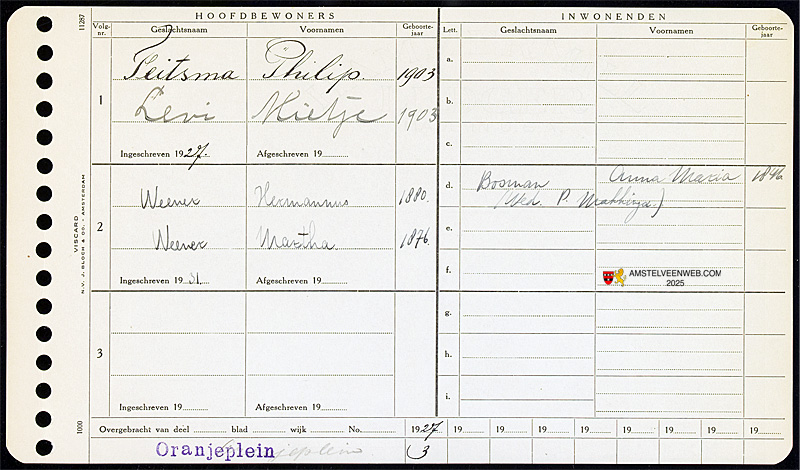 HOOFDBEWONERS
INWONENDEN
11287
Volg-nr.
Geslachtsnaam
Voornamen
Geboorte-jaar
Lett.
Geslachtsnaam
Voornamen
Geboorte-jaar
1
Feitsma Philip. 1903
Levi Mietje 1903
Ingeschreven 1927.
Afgeschreven 19
a.
b.
c.
2
Weener Hermannus 1880.
Weener Martha. 1876
Ingeschreven 1931.
Afgeschreven 19
d. Bosman Anna Maria 1846
(Wed. P. )
e.
f.
AMSTELVEENWEB.COM
2025
3
Ingeschreven 19
Afgeschreven 19
g.
h.
i.
VISCARD
N.V. J. BLOCH & CO. - AMSTERDAM
1000
Overgebracht van deel blad wijk No. 1927 19 19 19 19 19 19 19 19
Oranjeplein 3